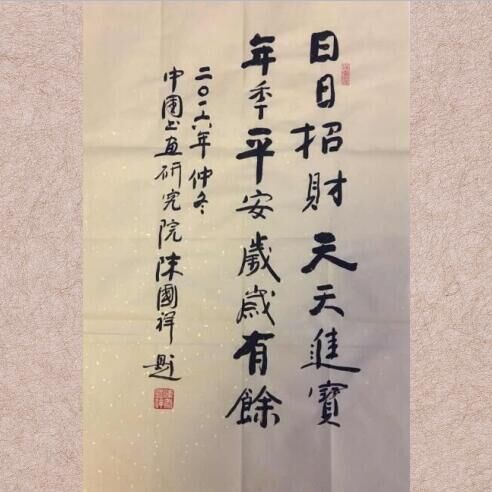 日日招財天天進寶
年年平安歲歲有餘
二〇一六年仲冬
中國书画研究院陈國祥题